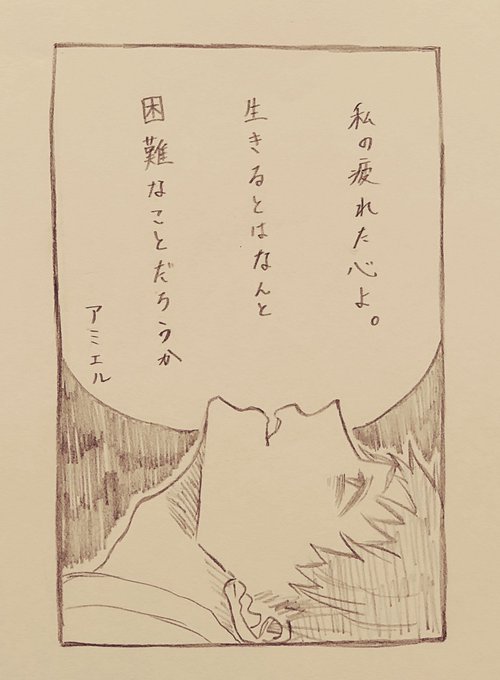 私の疲れた心よ。
生きるとはなんと
困難なことだろうか
アミエル